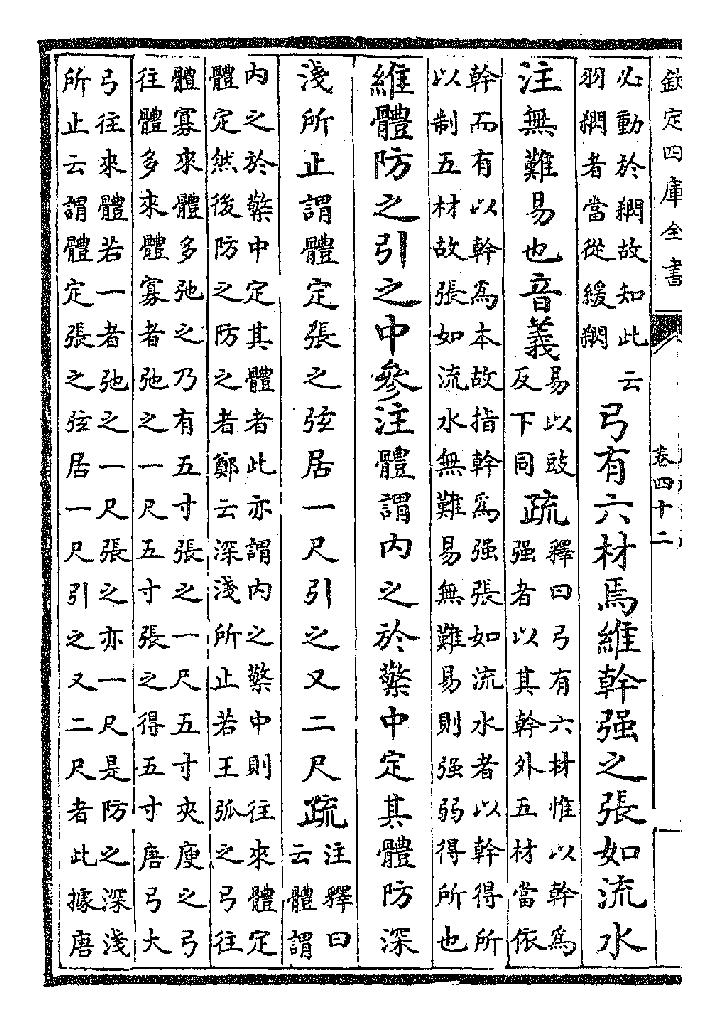 欽定四庫全書
卷四十二
必動於閷故知此云
羽閷者當從緩閷
弓有六材焉維幹强之張如流水
注無難易也音義
易以豉
反下同
疏
釋曰弓有六材惟以幹為
强者以其幹外五材當依
幹而有以幹為本故指幹為强張如流水者以幹得所
以制五材故張如流水無難易無難易則强弱得所也
維體防之引之中參注體謂内之於檠中定其體防深
淺所止謂體定張之弦居一尺引之又二尺疏
注釋曰
云體謂
内之於檠中定其體者此亦謂内之檠中則往來體定
體定然後防之防之者鄭云深淺所止若王弧之弓往
體寡來體多弛之乃有五寸張之一尺五寸夾庾之弓
往體多來體寡者弛之一尺五寸張之得五寸唐弓大
弓往來體若一者弛之一尺張之亦一尺是防之深淺
所止云謂體定張之弦居一尺引之又二尺者此據唐